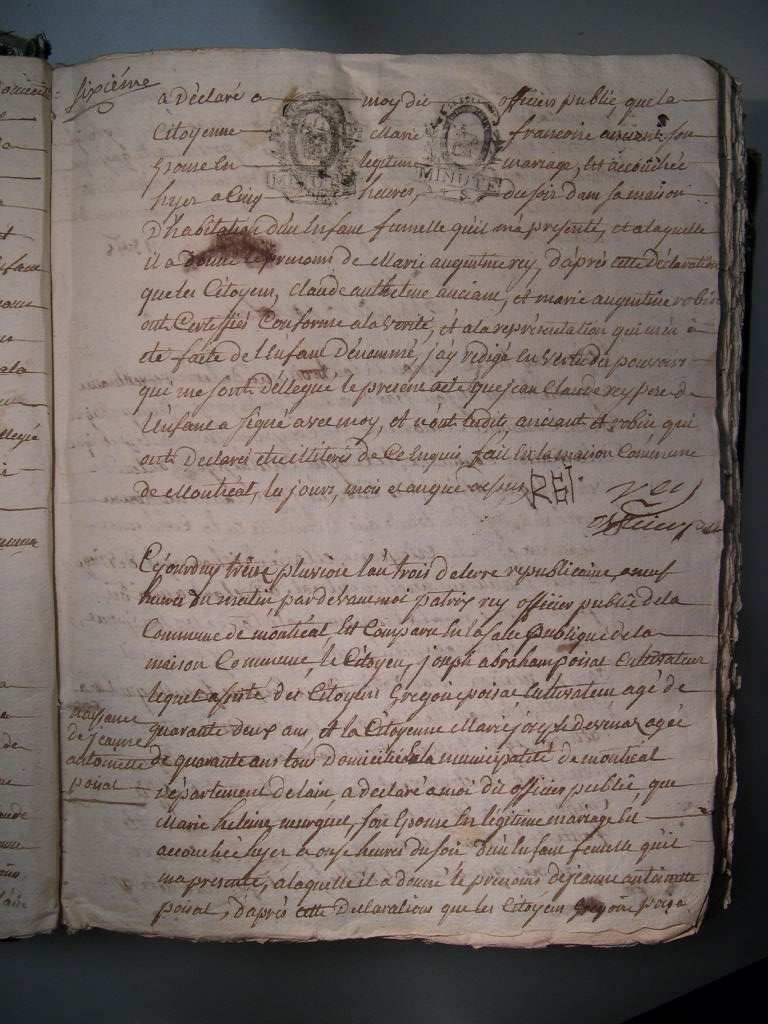 Sixiéme
a Déclaré a moy dit officier public que la
Citoyenne Marie francoise anciant son
Epouse En legitime mariage, Est accouchée
hyer a Cinq heures, du soir dans sa maison
MINUTE MINUTE
D'habitation d'un Enfant femelle qu'il m'a presenté, et a laquelle
il a donné le prenoms de Marie augustine rey, d'après cette Déclaration
que les Citoyens, Claude anthelme anciant, et marie augustine robin
ont Certiffiés Conforme a la verité, et a la représentation qui m'en à
été faite de l'Enfant Dénommé, j'ay redigé En vertu des pouvoirs
qui me sont délegué le present acte que jean Claude rey pere de
l'Enfant a signé avec moy, et n'ont lesdits anciant et robin qui
ont Declarés etre Illiterés de Ce Enquis, fait En la maison Commune
de Montréal, les jours, mois et an que dessus REI rey
Cejourdhuy treize pluviose l'an trois de l'erre republicaine, a neuf
heures du matin par devant moi patrix rey officier public de la
Commune de montréal, Est Comparu En la salle publique de la
maison Commune, le Citoyen, joseph abraham poisat Cultivateur
lequel assisté des Citoyens Gregoire poisat Cultivateur agé de
quarante deux ans et la Citoyenne Marie josephe agée
de quarante ans tous domiciliés la municipalité de montréal
Département de lain, a déclaré a moi dit officier public, que
Marie helaine murquet, son Epouse En légitime mariage Est
accouchée hyer a onze heures du soir d'un Enfant femelle qu'il
m'a presenté, a laquelle il a donné le prenoms de jeanne antoinette
poisat, d'après cette Declarations que les Citoyens Gregoire poisa
naissance
de jeanne
antoinette
poisat